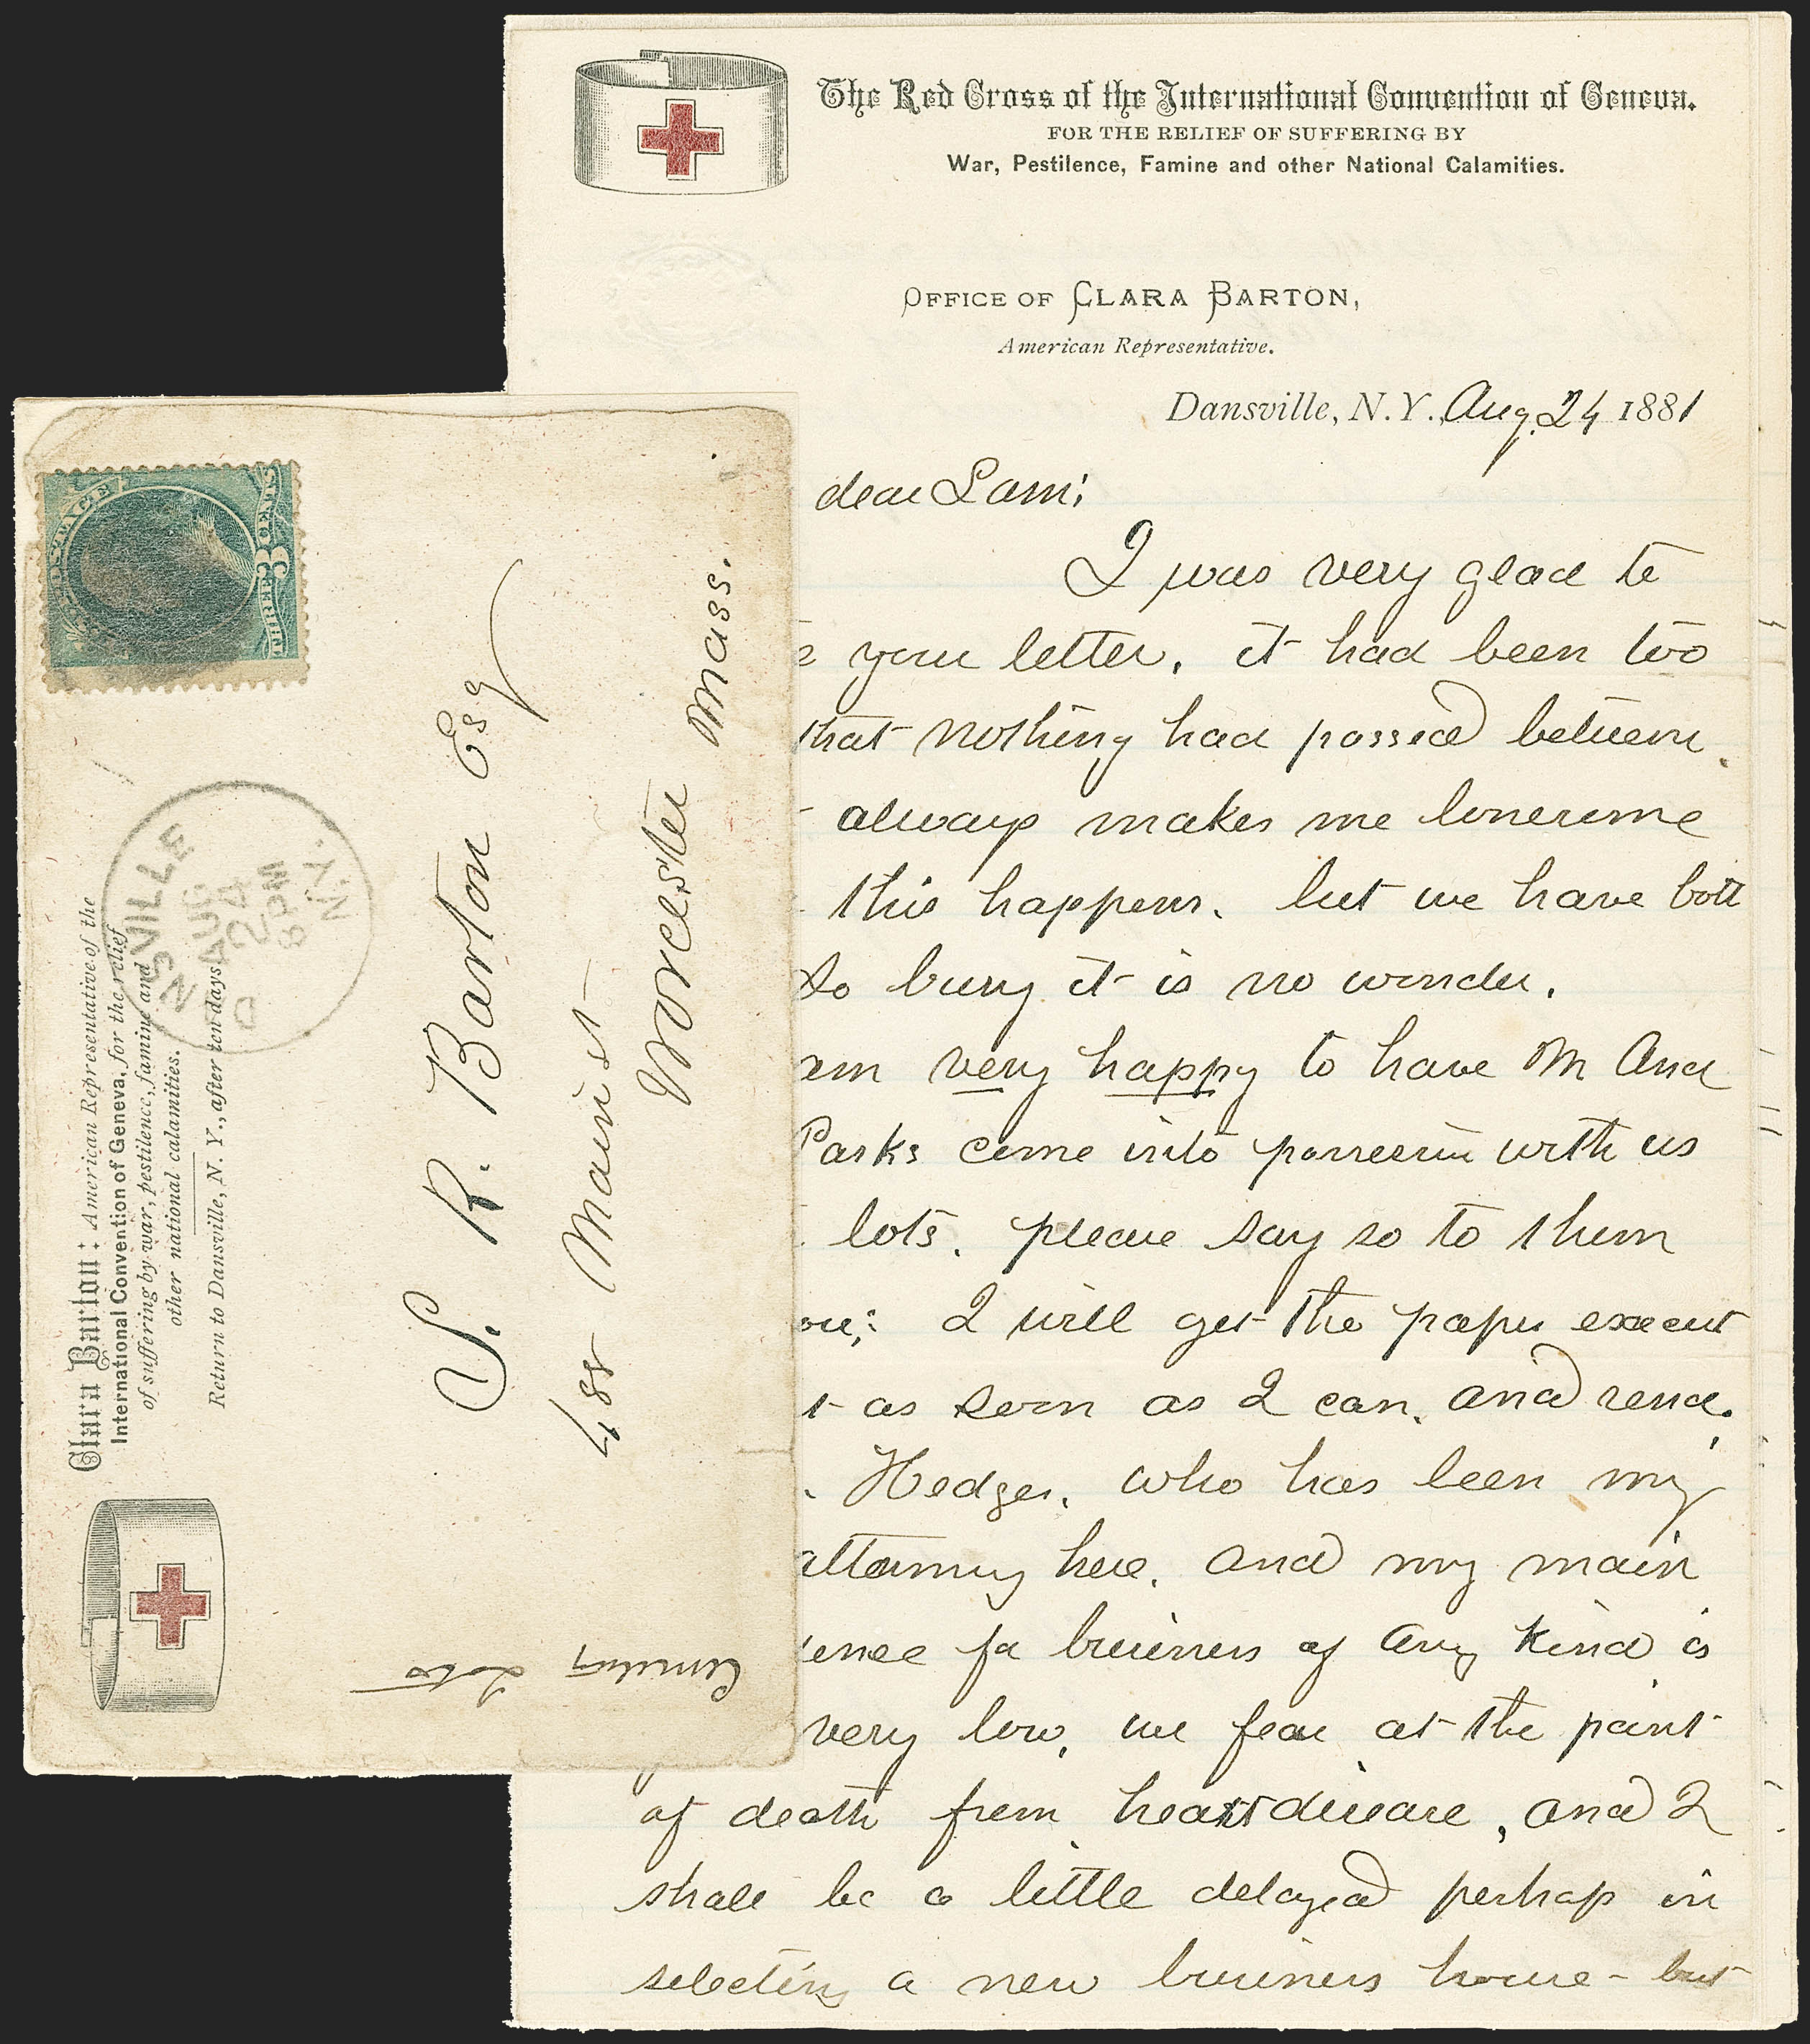 The Red Cross of the International Convention of Geneva.
FOR THE RELIEF OF SUFFERING BY
War, Pestilence, Famine and other National Calamities.
OFFICE OF CLARA BARTON,
American Representative.
Dansville, N. Y., Aug. 24 1881
dear Sam;
I was very glad to
your letter, it had been too
that nothing had passed between
always makes me lonesome
this happens, but we have both
so busy it is no wonder.
am very happy to have M and
Parks come into possession with us
lots, please say so to them
I will get the paper execut
as soon as I can, and send.
Hedges, who has been my
attorney here, and my main
for business of any kind is
very low, we fear at the point
of death from heart disease, and I
shall be a little delayed perhap in
selecting a new business house - but
POSTAGE
3 THREE CENTS
DANSVILLE
AUG
24
6 PM
N.Y.
Clara Barton: American Representative of the
International Convention of Geneva, for the relief
of suffering by war, pestilence, famine and
other national calamities.
Return to Dansville, N. Y., after ten days
S. R. Barton Esq
488 Main st
Worcester Mass.
Cemetery Lots